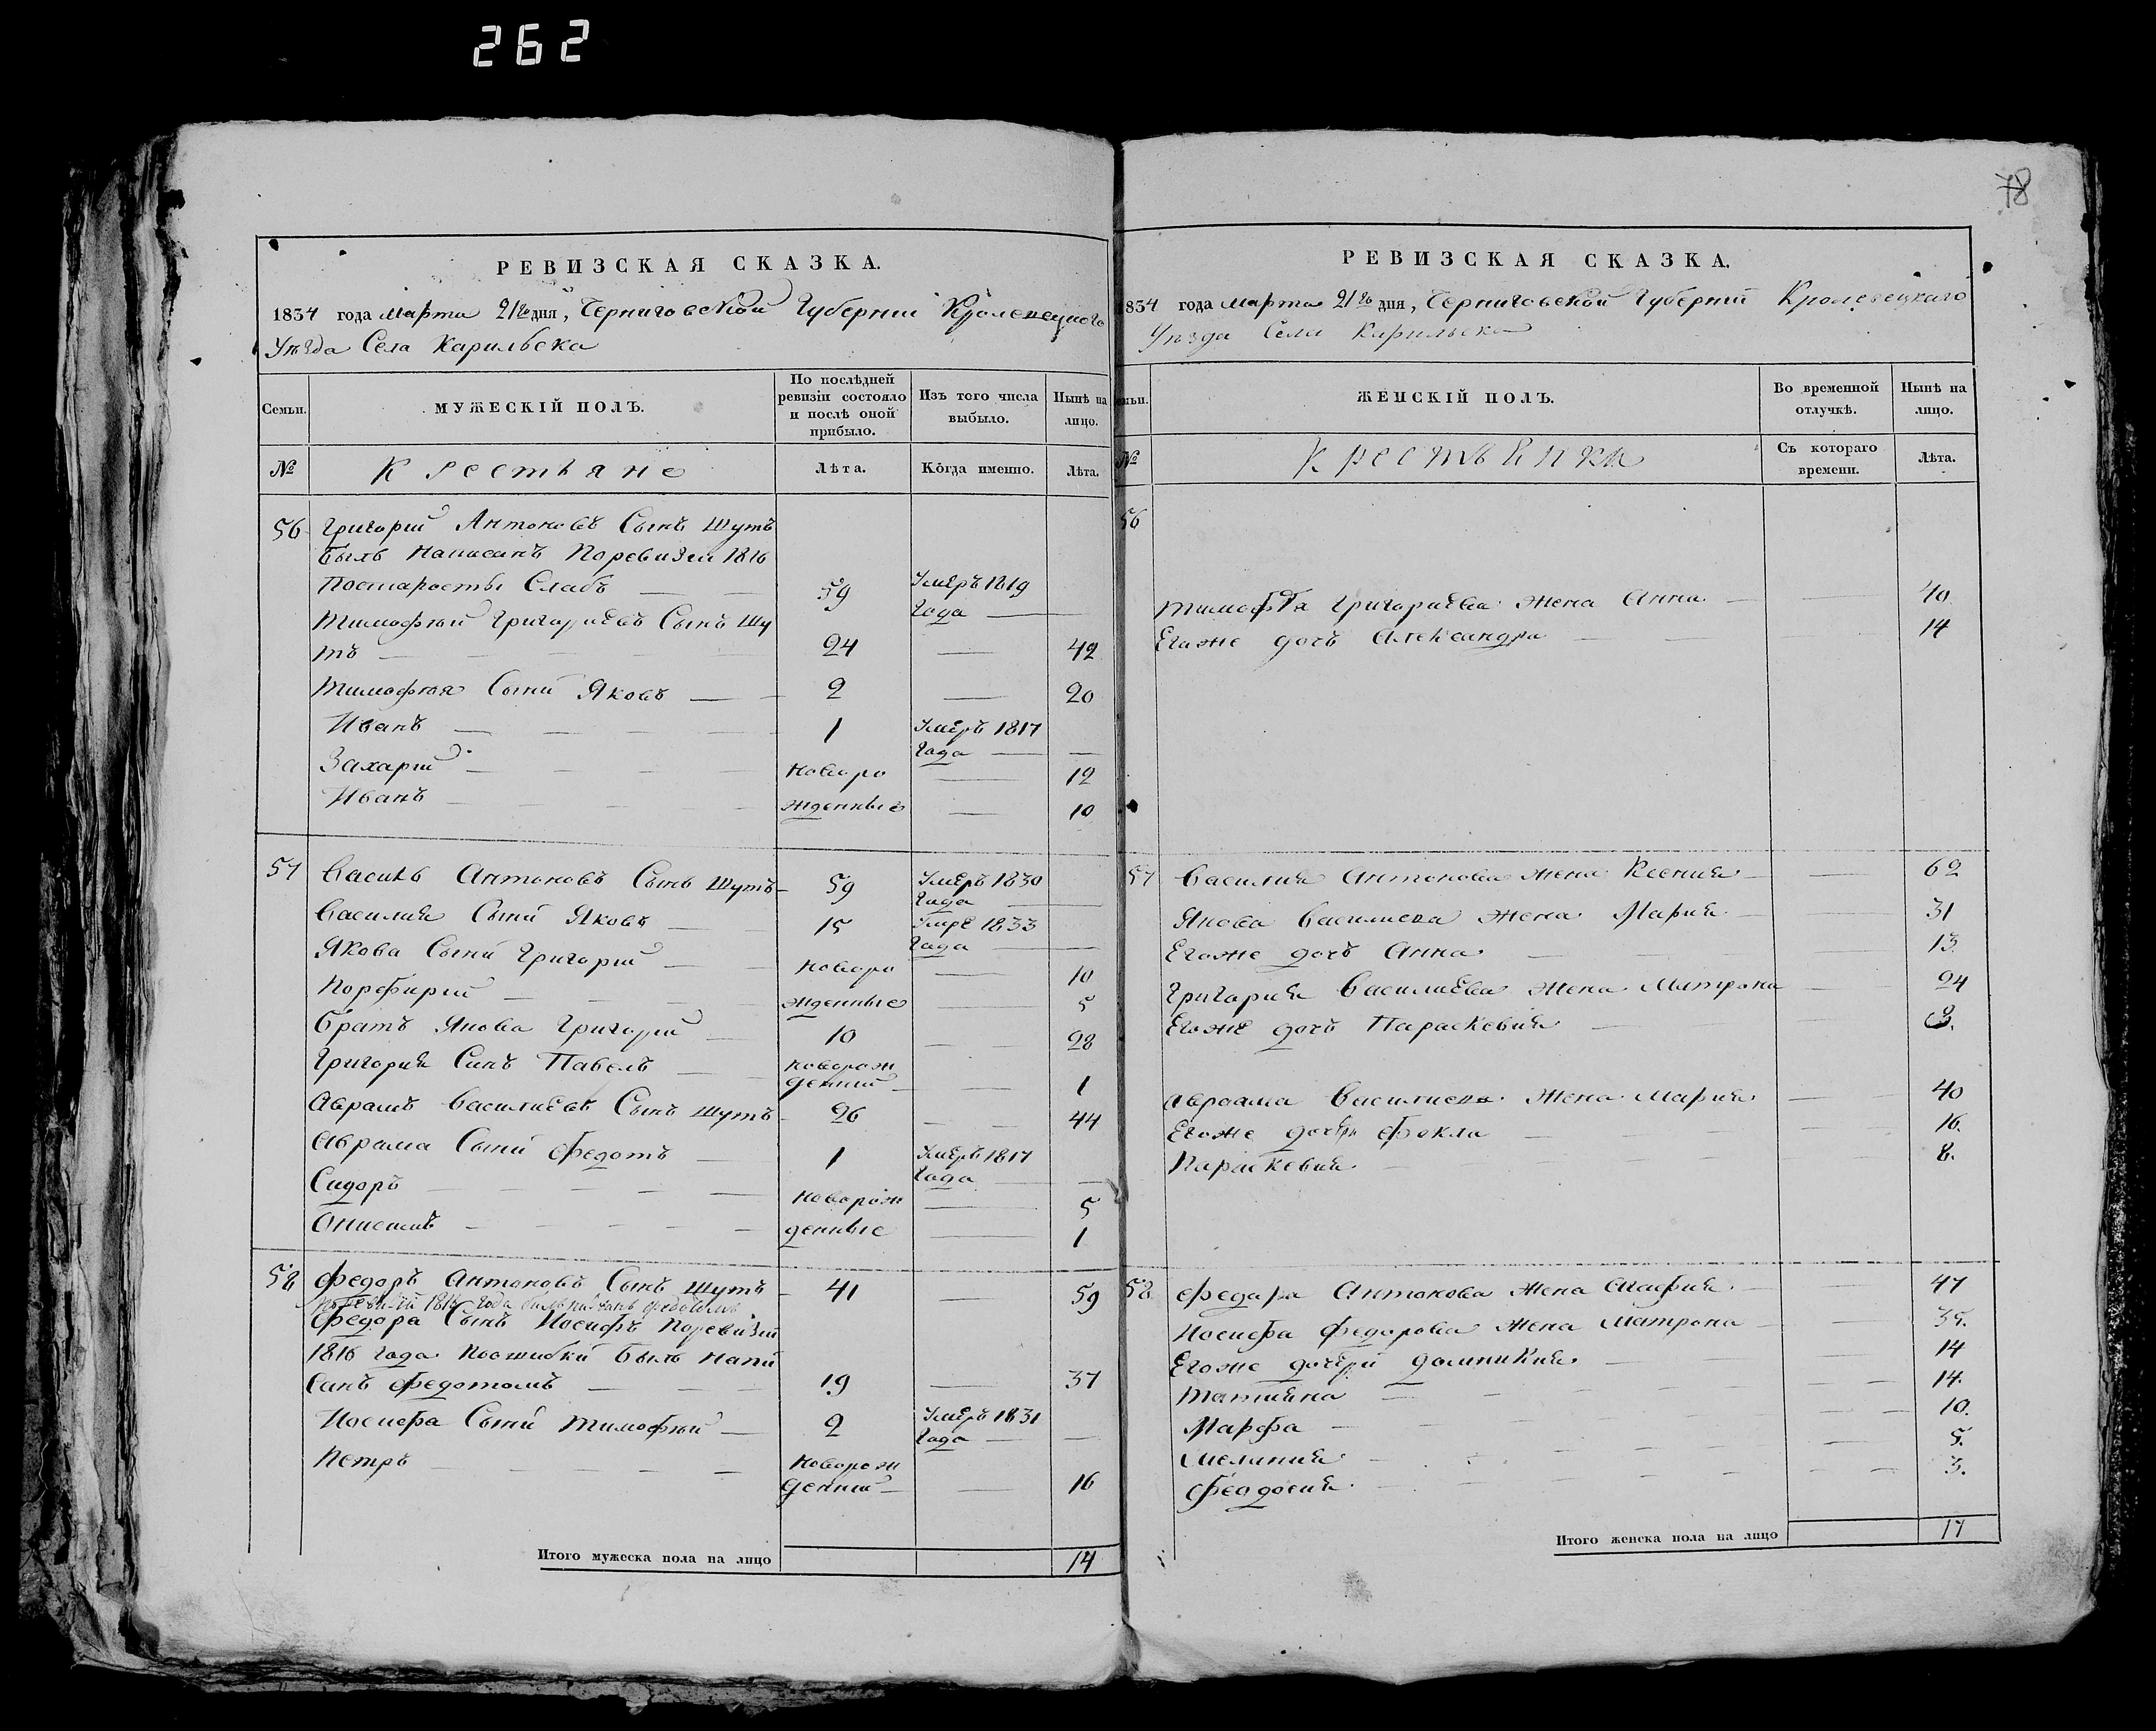 262
78
РЕВИЗСКАЯ СКАЗКА.
1834 года марта 21го дня, Черниговской Губернии Кролевецкого
Уезда Села Карильска
Семьи.
МУЖЕСКІЙ ПОЛЪ.
По послѣдней ревизіи состояло и послѣ оной прибыло.
Изъ того числа выбыло.
Нынѣ на лицо.
№
Крестьяне
Лѣта.
Когда именно.
Лѣта.
56 Григорий Антоновъ Сынъ Шутъ
былъ написанъ Поревизии 1816
Постарости Слабъ 59 Умеръ 1819 Года
Тимофѣй Григориевъ Сынъ Шу
тъ 24 42
Тимофѣя Сыни Яковъ 2 20
Иванъ 1 Умеръ 1817 Года
Захарий новоро 12
Иванъ жденные 10
57 Василь Антоновъ Сынъ Шутъ 59 Умеръ 1830 Года
Василия Сыни Яковъ 15 Умре 1833 Года
Якова Сыни Григорий новоро 10
Порфирий жденные 5
Братъ Якова Григорий 10 28
Григория Синъ Павелъ новорож дений 1
Аврамъ Василиевъ Сынъ Шутъ 26 44
Аврама Сыни Федотъ 1 Умеръ 1817 Года
Сидоръ новорож 5
Онисимъ денные 1
58 Федоръ Антоновъ Сынъ Шутъ 41 59
Федора Сынъ Иосифъ Поревизии
1816 года поошибки былъ напи
санъ Федотомъ 19 37
Иосифа Сыни Тимофѣй 2 Умеръ 1831 Года
Петръ Новорож дений 16
Итого мужеска пола на лицо 14
РЕВИЗСКАЯ СКАЗКА.
1834 года марта 21го дня, Черниговской Губернии Кролевецкаго
Уезда Села Карильска
ЖЕНСКІЙ ПОЛЪ.
Во временной отлучкѣ.
Нынѣ на лицо.
№
Крестьянки
Съ котораго времени.
Лѣта.
56
Тимофѣя Григориева жена Анна 40
Егоже дочъ Александра 14
57 Василия Антонова жена Ксения 62
Якова Василиева жена Мария 31
Егоже дочъ Анна 13
Григория Василиева жена Матрона 24
Егоже дочъ Параскевия
Авраама Василиева жена Мария 40
Егоже дочери Фекла 16.
Параскевия 8.
58 Федора Антонова жена Агафия 47
Иосифа Федорова жена Матрона 35.
Егоже дочери Домникия 14
Татияна 14.
Марфа 10.
Мелания 5.
Феодосия 3.
Итого женска пола на лицо 17